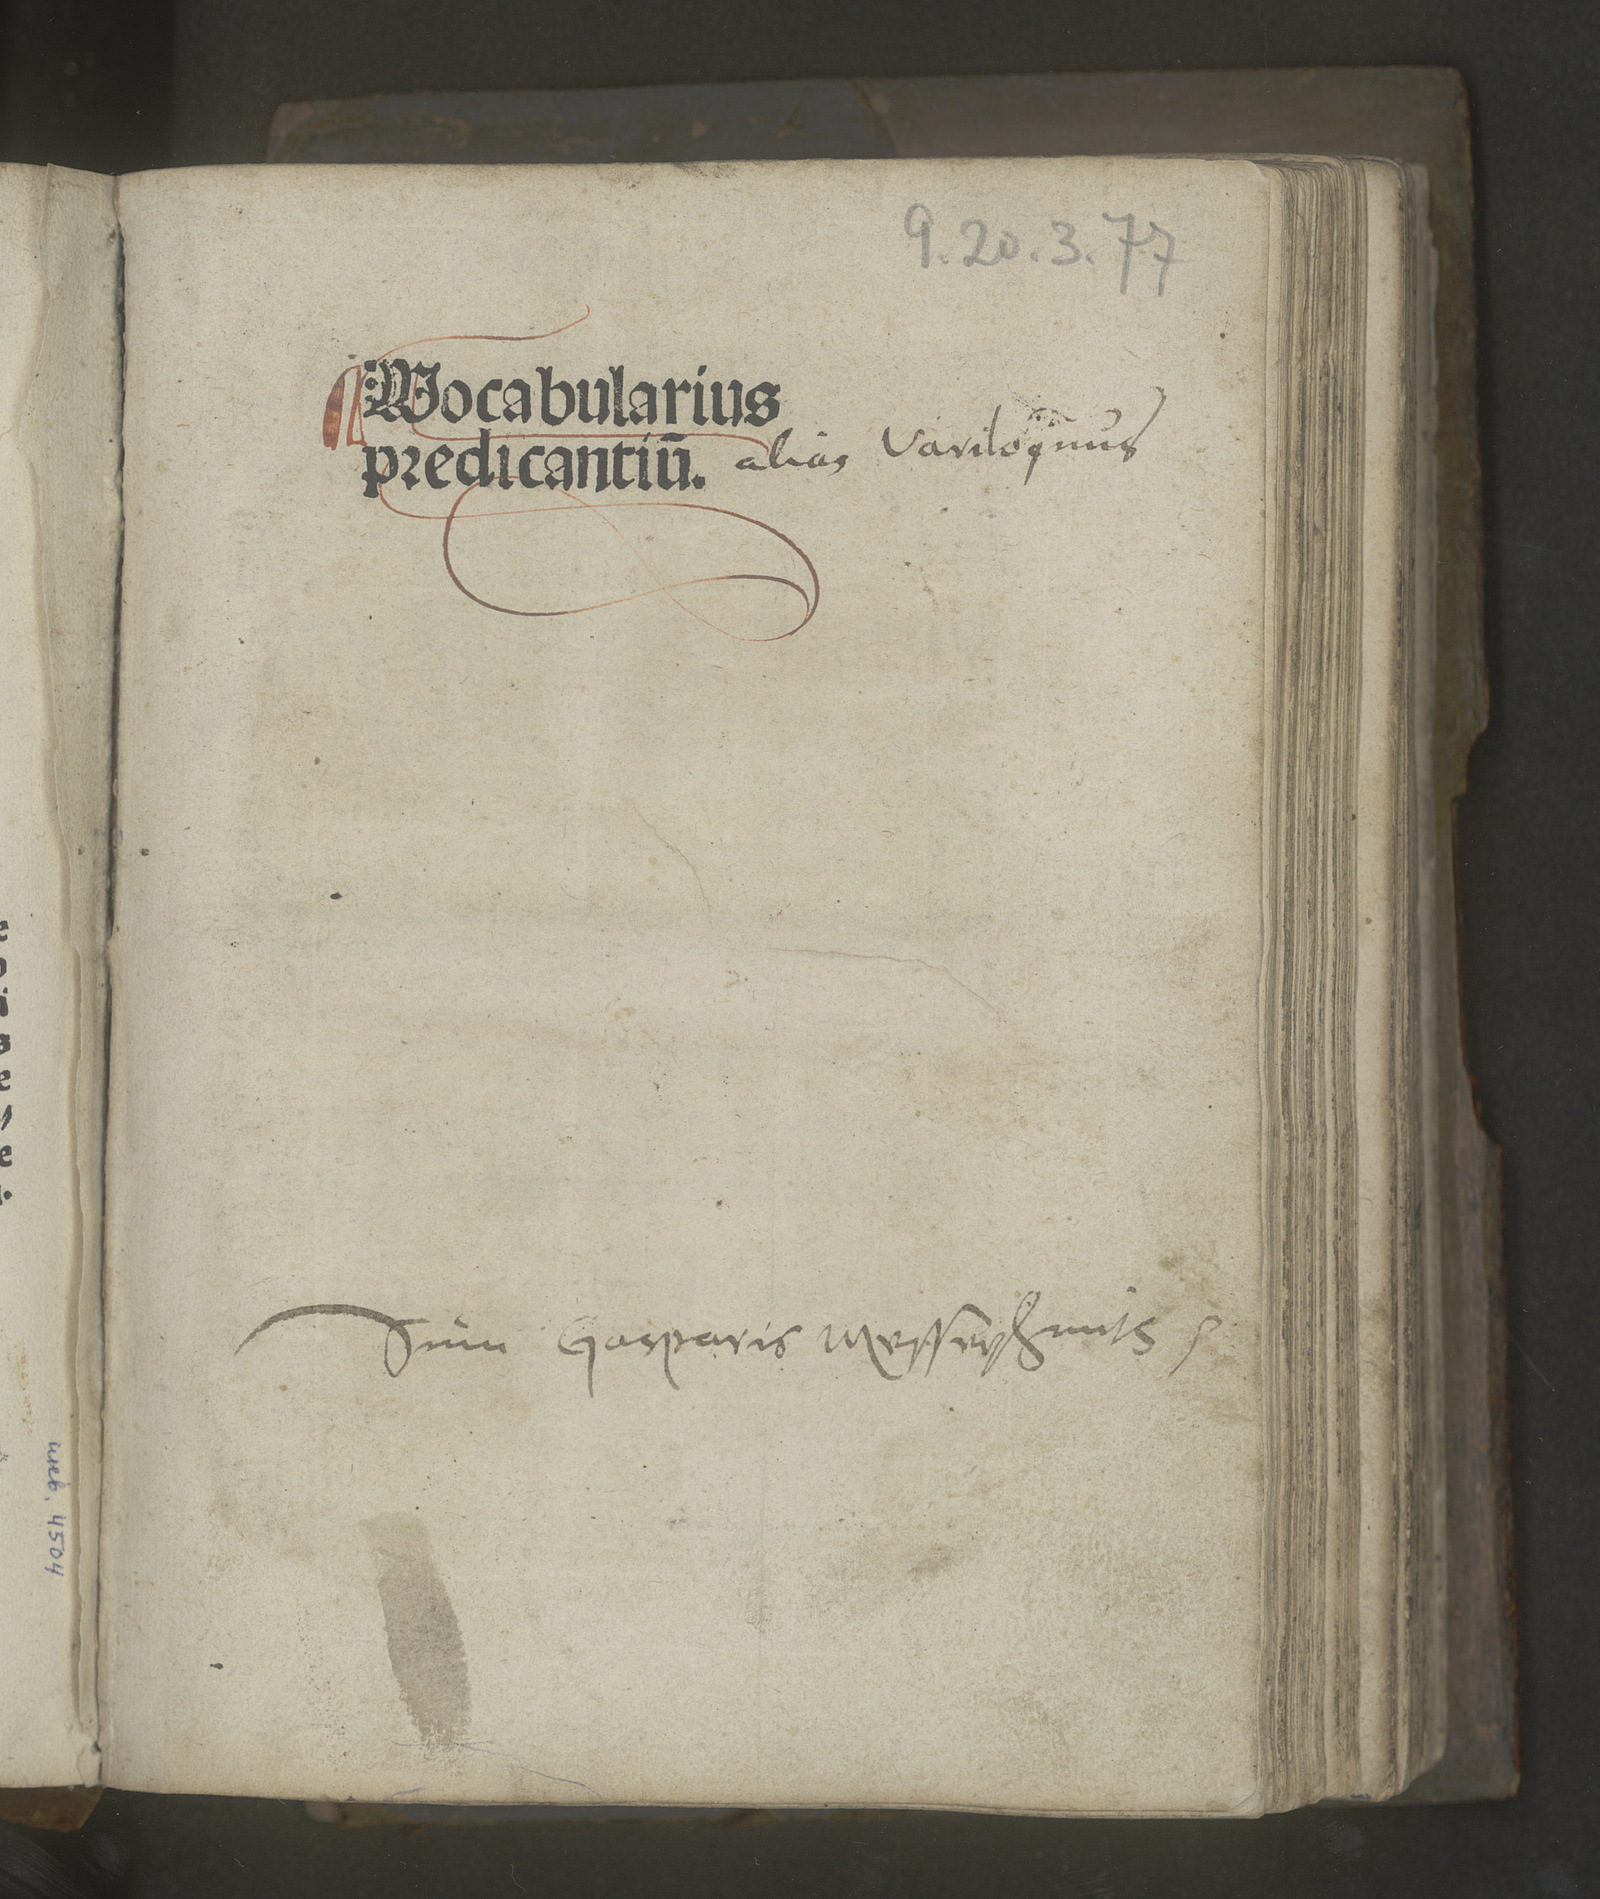 9.20.3.77
Vocabularius
predicantiū. alias Variloquus
Sum Gasparis Messerschmits
инв. 4504
e
e
e